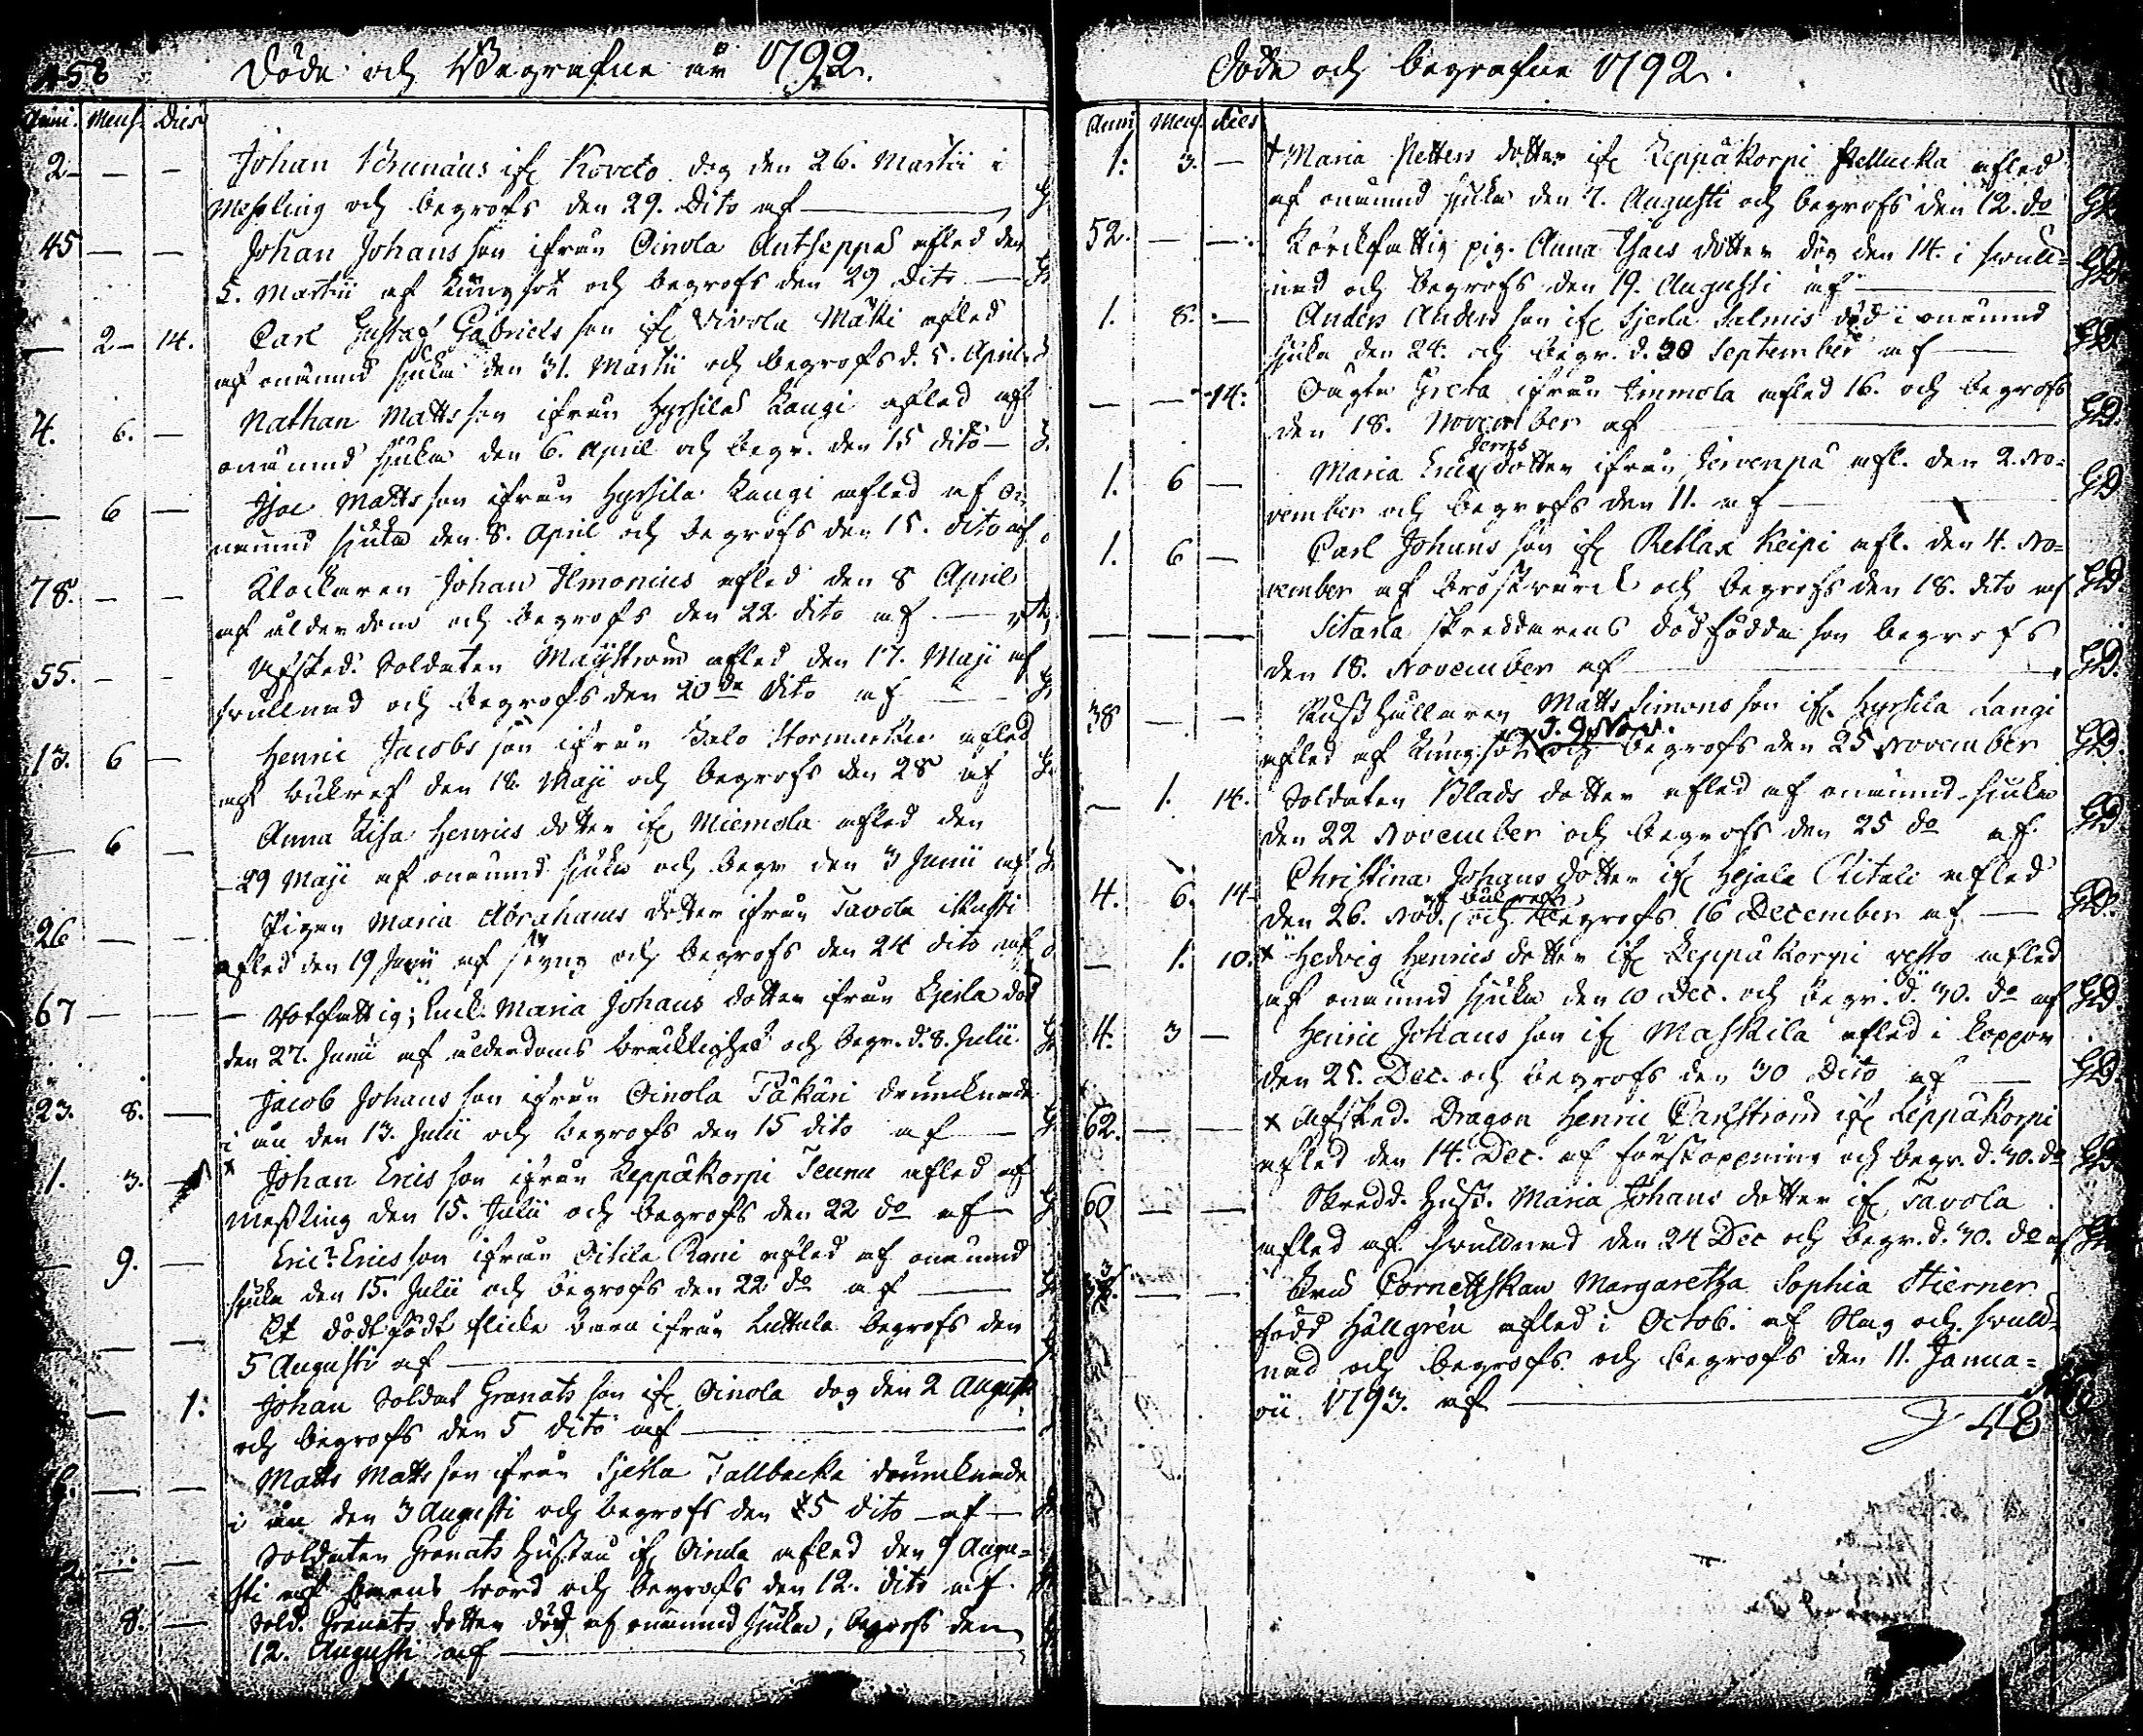 458
Döde och Begrafne år 1792.
Anni. Mens. Dies
2 — — Johan Brunäus ifr Koveto dog den 26. Martii i
Messling och begrofs den 29. Dito af —
45 — — Johan Johans son ifrån Oinola Antseppäs afled den
5. Martii af Lungsot och begrofs den 29 dito —
— 2 — 14. Carl Gustaf Gabriels son ifr Vivola Mäki afled
af onämnd sjuka den 31. Martii och begrofs d. 5. April
4. 6. — Nathan Matts son ifrån Hyrsilä Langi afled af
onämnd sjuka den 6. April och begr. den 15 dito —
— 6 — Isac Matts son ifrån Hyrsilä Langi afled af o-
nämnd sjuka den 8. April och begrofs den 15. dito af
78. — — Klockaren Johan Ilmonius afled den 8 April
af ålderdom och begrofs den 22 dito af —
55. — — Afsked. Soldaten Maijstrom afled den 17. Maji af
svullnad och begrofs den 20de dito af —
13. 6 — Henric Jacobs son ifrån Stormarken afled
af bukref den 18. Maji och begrofs den 28 af
— 6 — Anna Lisa Henrics dotter ifr Miemola afled den
29 Maji af onämnd sjuka och begr den 3 Junii af
26 — — Pigan Maria Abrahams dotter ifrån Tavola
afled den 19 Junii af och begrofs den 24 dito af
67 — — Rotfattig; Enk. Maria Johans dotter ifrån Gerla död
den 27. Junii af ålderdoms bräcklighet och begr. d. 8. Julii.
23. 8. — Jacob Johans son ifrån Oinola Päkäri drunknade
i ån den 13. Julii och begrofs den 15 dito af —
1. 3. — x Johan Erics son ifrån Leppäkorpi Teunu afled af
Messling den 15. Julii och begrofs den 22 do af —
— 9. — Eric Erics son ifrån Oitila Rani afled af onämnd
sjuka den 15. Julii och begrofs den 22 do af —
— — Et dödt födt flicke barn ifrån Luttula begrofs den
5 Augusti af —
— 1: Johan Soldat Granats son ifr Oinola dog den 2 Augusti
och begrofs den 5 dito af —
— — Matts Matts son ifrån Sjerla Tallbacka drunknade
i ån den 3 Augusti och begrofs den 5 dito af —
— — Soldaten Granats Hustru ifr Oinola afled den 9 Augu-
sti af barns bord och begrofs den 12. dito af.
8. — Sold. Granats dotter död af onämnd sjuka, begrofs den
12. Augusti af —
Döde och begrafne 1792.
Anni Mens. Dies
1: 3. — + Maria Petters dotter ifr Leppäkorpi Pellucka afled
af onämnd sjuka den 7. Augusti och begrofs den 12. do
52. — — Körckfattig pig. Anna Isacs dotter dög den 14. i swull-
nad och begrofs den 19. Augusti af —
1. 8. — Anders Anders son ifr Sjerla Salmis död i onämnd
sjuka den 24. och begr. d. 30 September af —
— — 14: Oägta Greta ifrån Immola afled 16. och begrofs
den 18. November af —
1. 6 — Maria Erics dotter ifrån Jervenpä afl. den 2. No-
vember och begrofs den 11. af —
1. 6 — Carl Johans son ifr Retlax Keipi afl. den 4. No-
vember af bröstverck och begrofs den 18. dito af
— — — Sitarla skreddarens dödfödda son begrofs
den 18. November af —
38 — — Rusthållaren Matts Simons son ifr Hyrsilä Langi
d. 9. Nov.
afled af Lungsot och begrofs den 25 November
— 1. 14. Soldaten Blads dotter afled af onämnd sjuka
den 22 November och begrofs den 25 do af.
4. 6. 14 Christina Johans dotter ifr Hejala Ritali afled
af bukref
den 26. Nov. och begrofs 16 December af —
— 1. 10. x Hedvig Henrics dotter ifr Leppäkorpi afled
af onämnd sjuka den 10 Dec. och begr. d. 30. do af
4. 3 — Henric Johans son ifr Maskila afled i koppor
den 25. Dec. och begrofs den 30 Dito af —
62. — — x Afsked. Dragon Henric Carlström ifr Leppäkorpi
afled den 14 Dec. af förstoppning och begr. d. 30. do
60 — — Skredd. Hust. Maria Johans dotter ifr Tavola
afled af svullnad den 24 Dec och begr. d. 30. do af
— — Cornettskan Margaretha Sophia Stierner
född Hällgren afled i Octob. af Slag och swull-
nad och begrofs och begrofs den 11. Janua-
rii 1793. af —
48